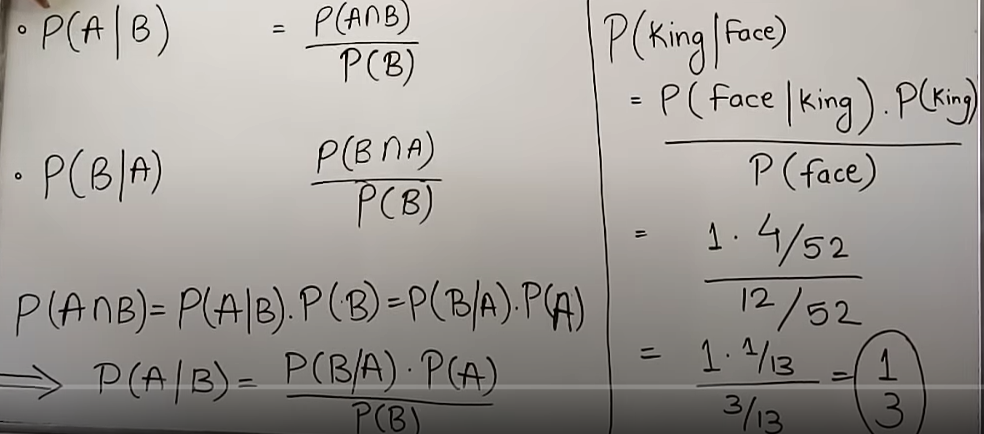 • P(A|B) = P(A∩B)
P(B)
• P(B|A) P(B∩A)
P(B)
P(A∩B)=P(A|B).P(B)=P(B/A).P(A)
⇒ P(A/B)= P(B/A)·P(A)
P(B)
P(King|Face)
= P(face|king).P(king)
P(face)
= 1·4/52
12/52
= 1·1/13 = 1
3/13 3